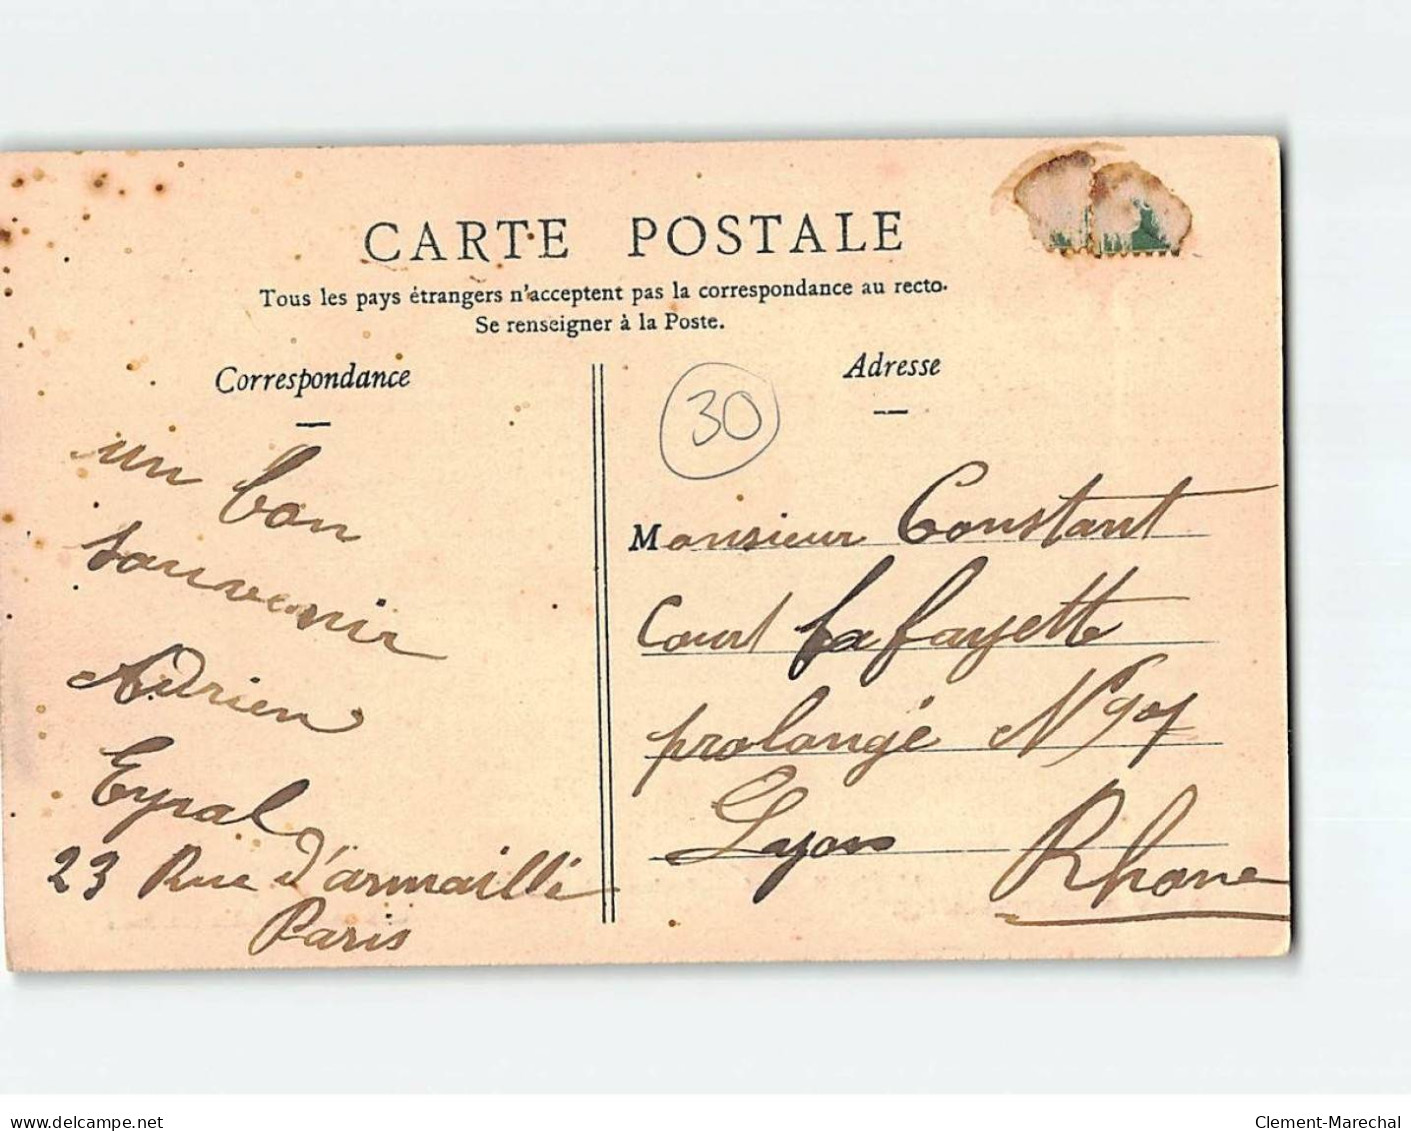 CARTE POSTALE
Tous les pays étrangers n'acceptent pas la correspondance au recto.
Se renseigner à la Poste.
Correspondance
un bon
souvenir
Adrien
Eyral
23 Rue d'armaillé
Paris
Adresse
30
Monsieur Constant
Court Lafayette
prolongé N
Lyon
Rhone
delcampe.net
Clement-Marechal